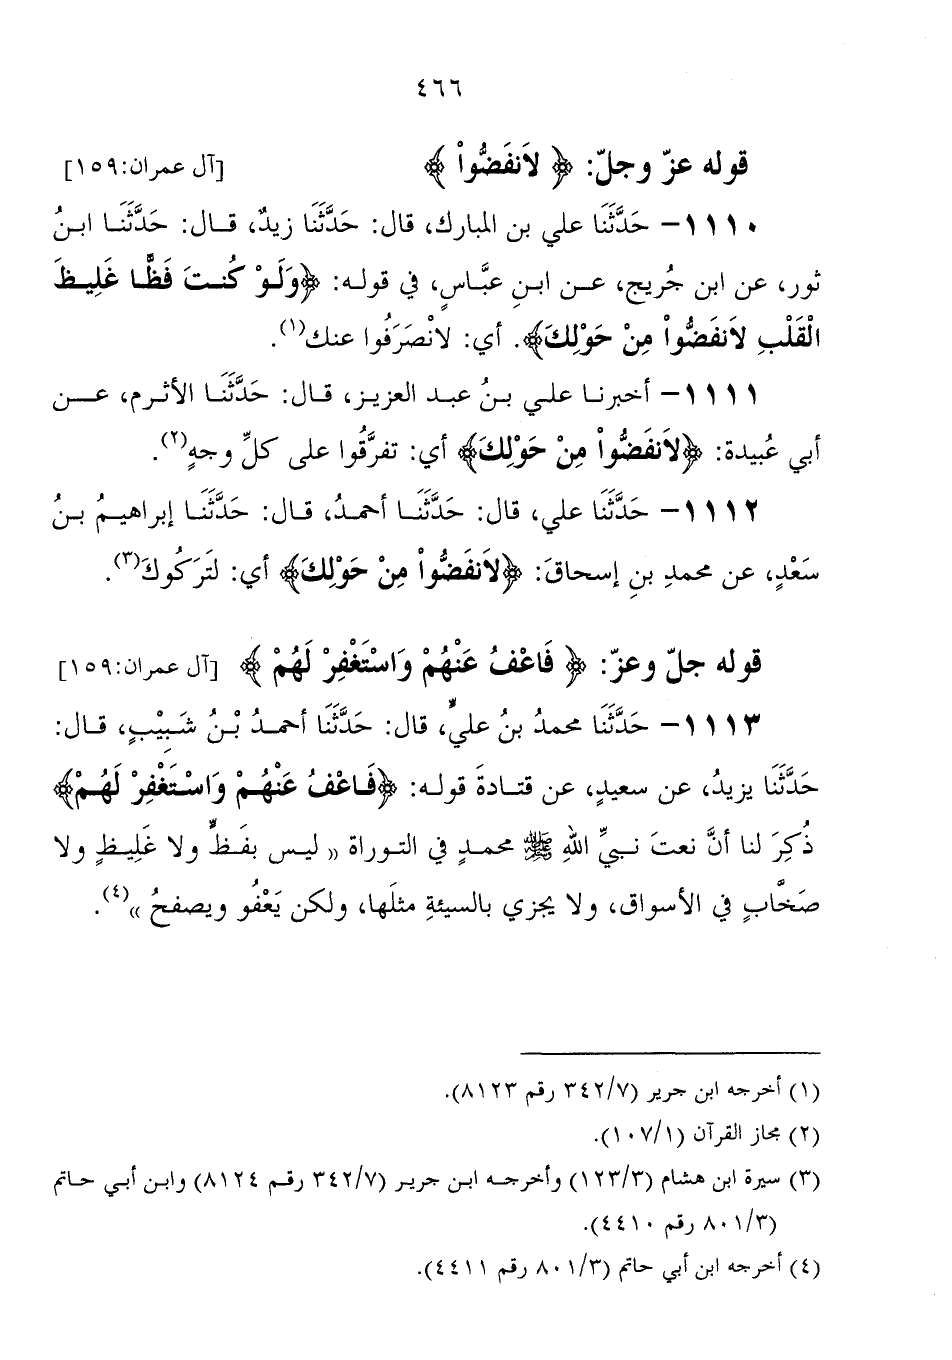 ٤٦٦
قوله عزّ وجلّ: ﴿ لاَنفَضُّواْ ﴾ [آل عمران:١٥٩]
١١١٠- حَدَّثَنَا علي بن المبارك، قال: حَدَّثَنَا زيدٌ، قال: حَدَّثَنَا ابنُ
ثور، عن ابن جُريج، عن ابنِ عبَّاسٍ، في قوله: ﴿وَلَوْ كُنتَ فَظًّا غَلِيظَ
الْقَلْبِ لاَنفَضُّواْ مِنْ حَوْلِكَ﴾. أي: لانْصَرَفُوا عنك(١).
١١١١- أخبرنا علي بنُ عبد العزيز، قال: حَدَّثَنَا الأثرم، عن
أبي عُبيدة: ﴿لاَنفَضُّواْ مِنْ حَوْلِكَ﴾ أي: تفرَّقُوا على كلِّ وجهٍ(٢).
١١١٢- حَدَّثَنَا علي، قال: حَدَّثَنَا أحمدُ، قال: حَدَّثَنَا إبراهيمُ بنُ
سَعْدٍ، عن محمدِ بنِ إسحاقَ: ﴿لاَنفَضُّواْ مِنْ حَوْلِكَ﴾ أي: لَتَرَكُوكَ(٣).
قوله جلّ وعزّ: ﴿ فَاعْفُ عَنْهُمْ وَاسْتَغْفِرْ لَهُمْ ﴾ [آل عمران:١٥٩]
١١١٣- حَدَّثَنَا محمدُ بنُ عليٍّ، قال: حَدَّثَنَا أحمدُ بْنُ شَبِيْبٍ، قال:
حَدَّثَنَا يزيدُ، عن سعيدٍ، عن قتادةَ قوله: ﴿فَاعْفُ عَنْهُمْ وَاسْتَغْفِرْ لَهُمْ﴾
ذُكِرَ لنا أنَّ نعتَ نبيِّ اللهِ ﷺ محمدٍ في التوراة « ليس بفَظٍّ ولا غَلِيظٍ ولا
صَخَّابٍ في الأسواق، ولا يجزي بالسيئةِ مثلَها، ولكن يَعْفُو ويصفحُ »(٤).
(١) أخرجه ابن جرير (٣٤٢/٧ رقم ٨١٢٣).
(٢) مجاز القرآن (١٠٧/١).
(٣) سيرة ابن هشام (١٢٣/٣) وأخرجه ابن جرير (٣٤٢/٧ رقم ٨١٢٤) وابن أبي حاتم
(٨٠١/٣ رقم ٤٤١٠).
(٤) أخرجه ابن أبي حاتم (٨٠١/٣ رقم ٤٤١١).